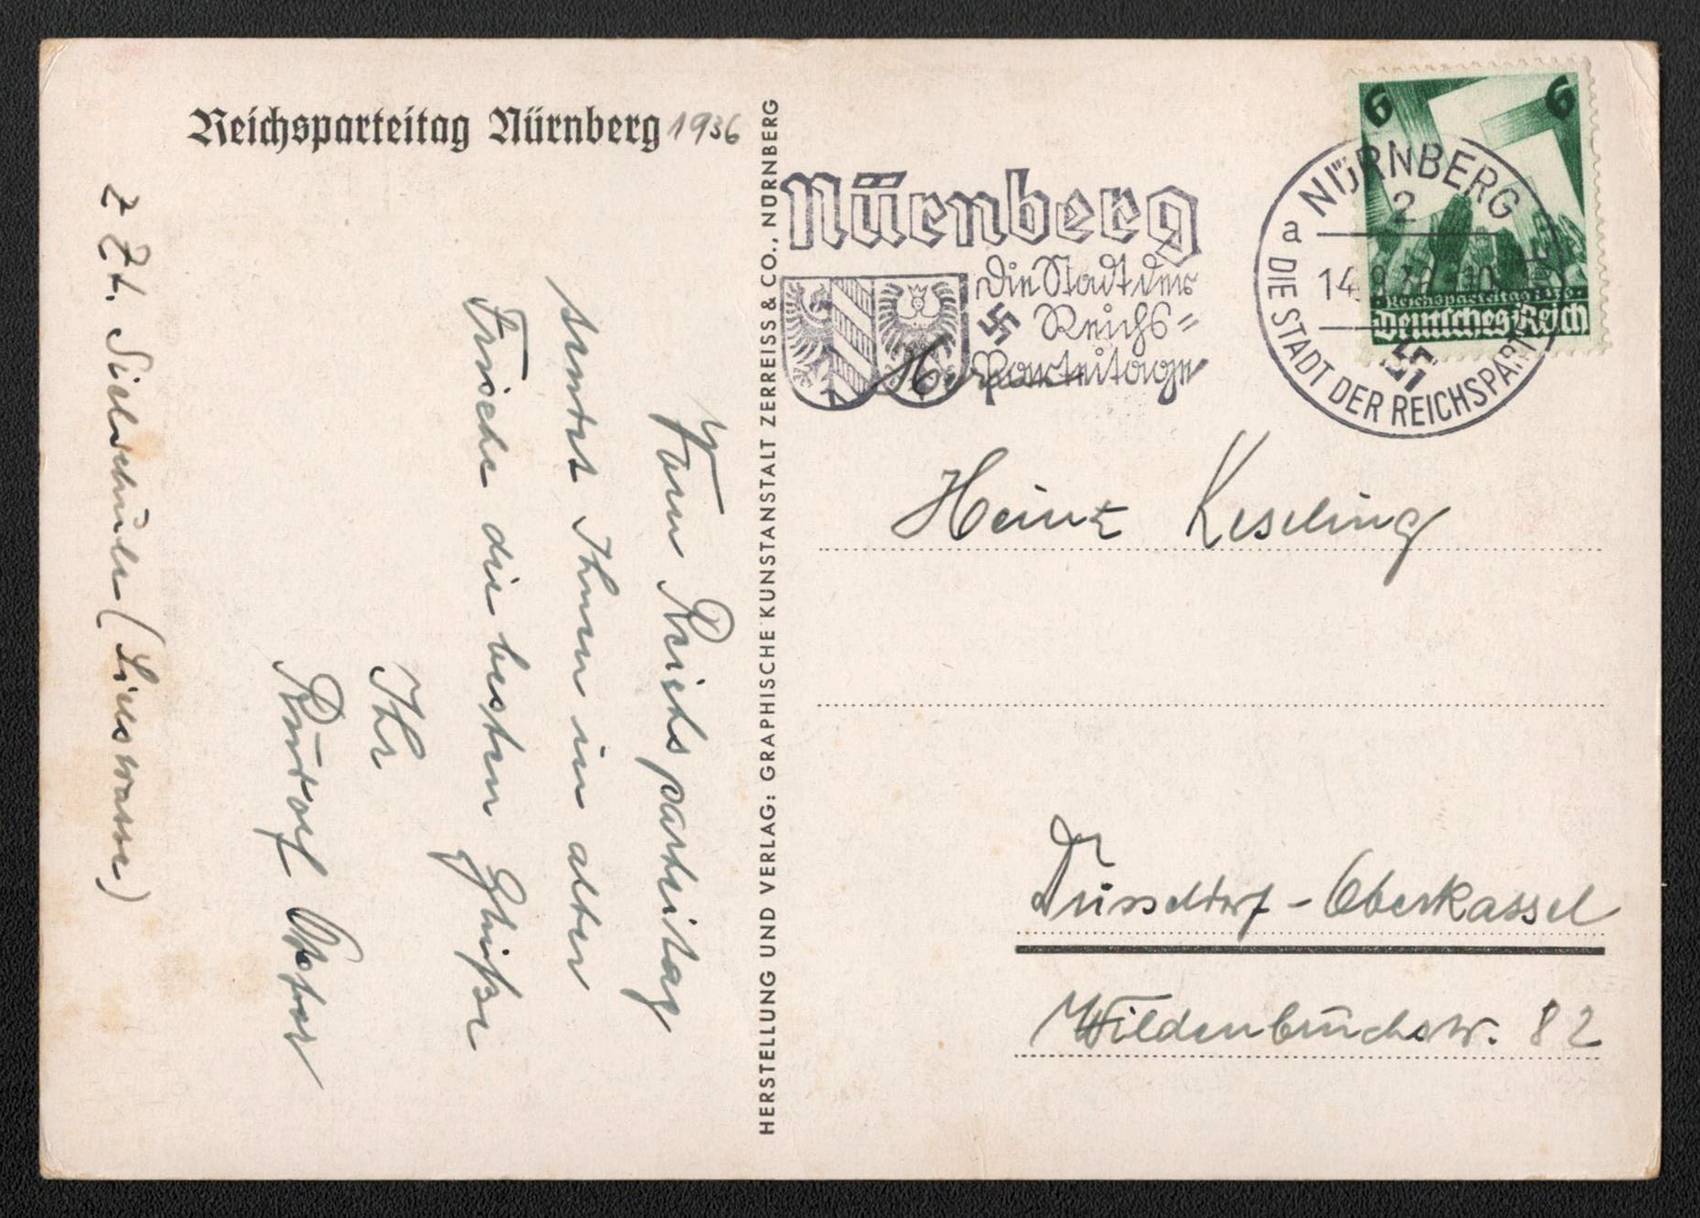 Reichsparteitag Nürnberg 1936
Vom Reichsparteitag
sendet Ihnen in alter
Frische die besten Grüße
Ihr
Rudolf
z. Zt.
HERSTELLUNG UND VERLAG: GRAPHISCHE KUNSTANSTALT ZERREISS & CO., NÜRNBERG
Nürnberg
Die Stadt der
Reichs=
Parteitage
NÜRNBERG
2
a
14.9.36 10
DIE STADT DER REICHSPART
6 6
Reichsparteitag 1936
Deutsches Reich
Herrn
Heinz Keseling
Düsseldorf-Oberkassel
Wildenbruchstr. 82